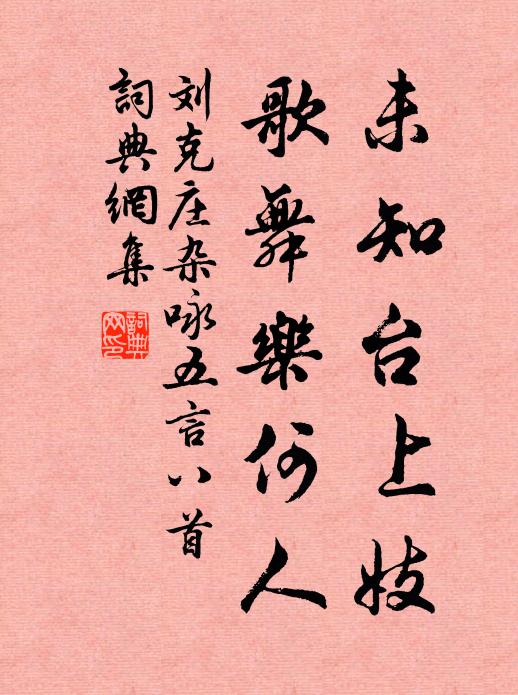 未知台上妓
歌舞樂何人
刘克庄杂咏五言八首
詞典網集
詞典
网印